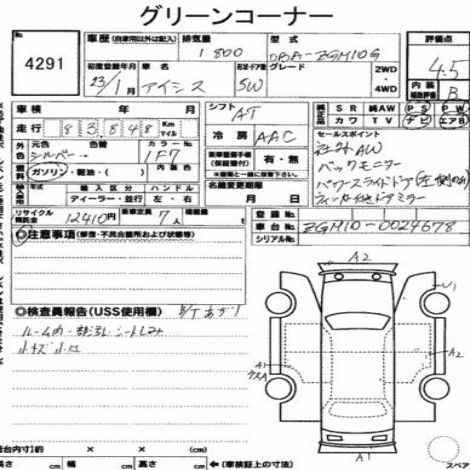 グリーンコーナー
No 4291
車歴 (自家用以外は記入) 排気量 型式 評価点
1800 DBA-ZGM10G 4.5
初度登録年月 車名 形状・ドア数 グレード 2WD 4WD 内装 補助評価 B
23/1月 アイシス 5W
車検 年 月 シフト AT
純正品 SR 純AW PS PW
カワ TV ナビ エアB
走行 83848 Km マイル
冷房 AAC
セールスポイント
社外AW
外色 元色 色替 カラーNo.
シルバー 1F7
バックモニター
ガソリン・軽油・( ) 有・無
パワースライドドア(左側のみ)
輸入区分 ハンドル 名義変更期限
ウィンカー付ドアミラー
ディーラー・並行 左・右 月 日
リサイクル預託金 12410円 乗車定員 7人 積載量
登録No.
車台No. ZGM10-0024678
シリアルNo.
◎注意事項 (修復・不具合箇所および状態等)
A2
◎検査員報告 (USS使用欄)
U1
ルーム内・シートしみ
小キズ小凹
A1 A2
A1
荷台内寸 × × (cm)
長さ cm 幅 cm 高さ cm ←(車検証上の寸法) スペア